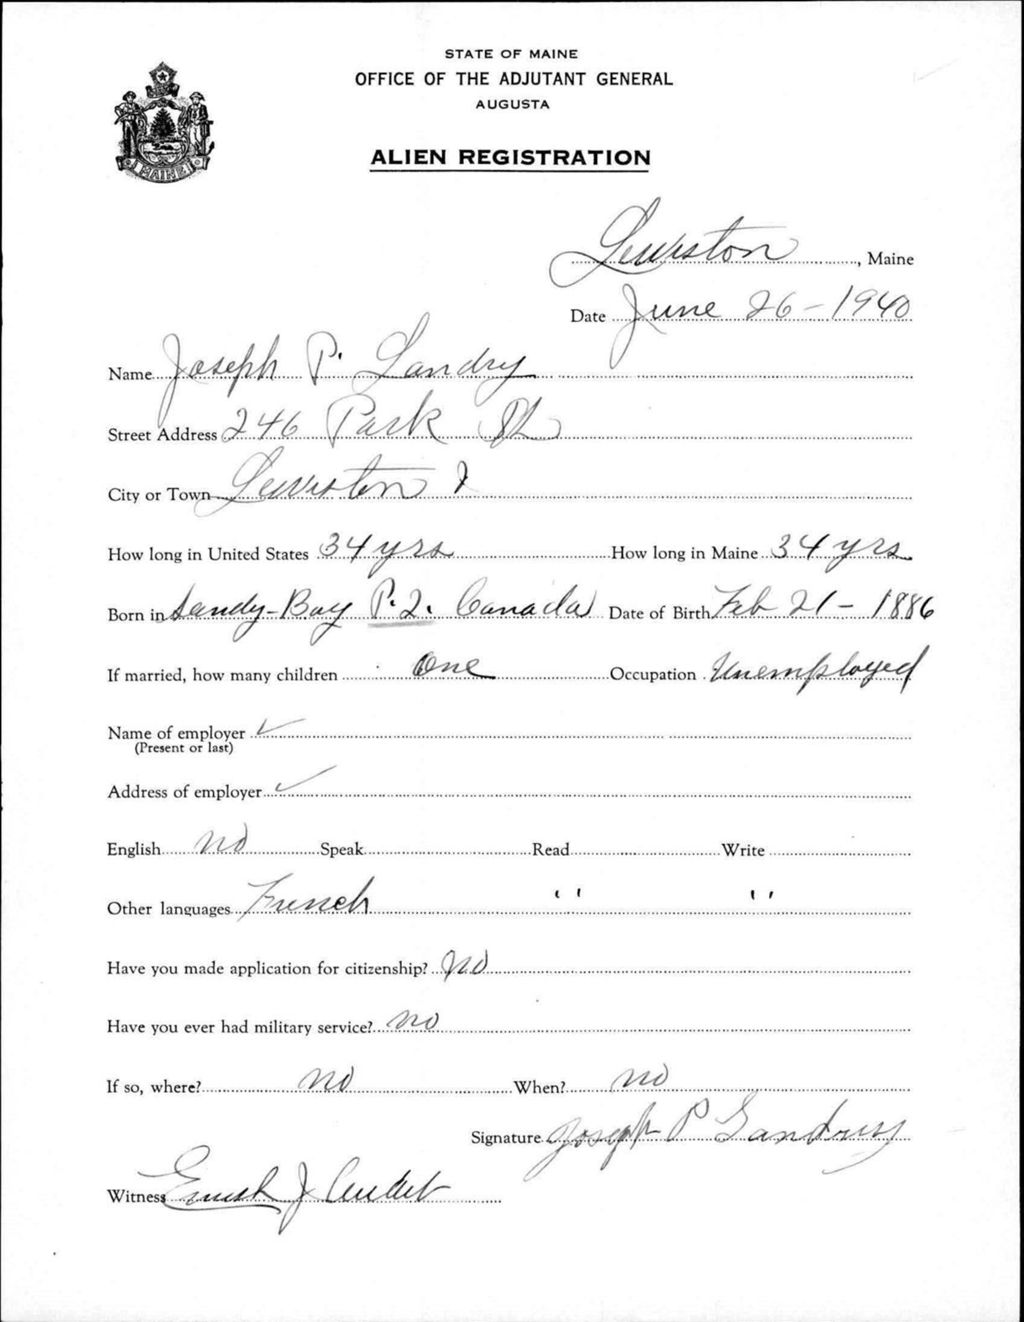 STATE OF MAINE
OFFICE OF THE ADJUTANT GENERAL
AUGUSTA
ALIEN REGISTRATION
MAINE
Lewiston, Maine
Date June 26-1940
Name Joseph P. Landry
Street Address 246 Park St
City or Town Lewiston
How long in United States 34 yrs How long in Maine 34 yrs
Born in Sandy-Bay P.Q. Canada Date of Birth Feb 21-1886
If married, how many children one Occupation Unemployed
Name of employer ✓
(Present or last)
Address of employer ✓
English no Speak Read Write
Other languages French " "
Have you made application for citizenship? no
Have you ever had military service? no
If so, where? no When? no
Signature Joseph P Landry
Witness J Audet